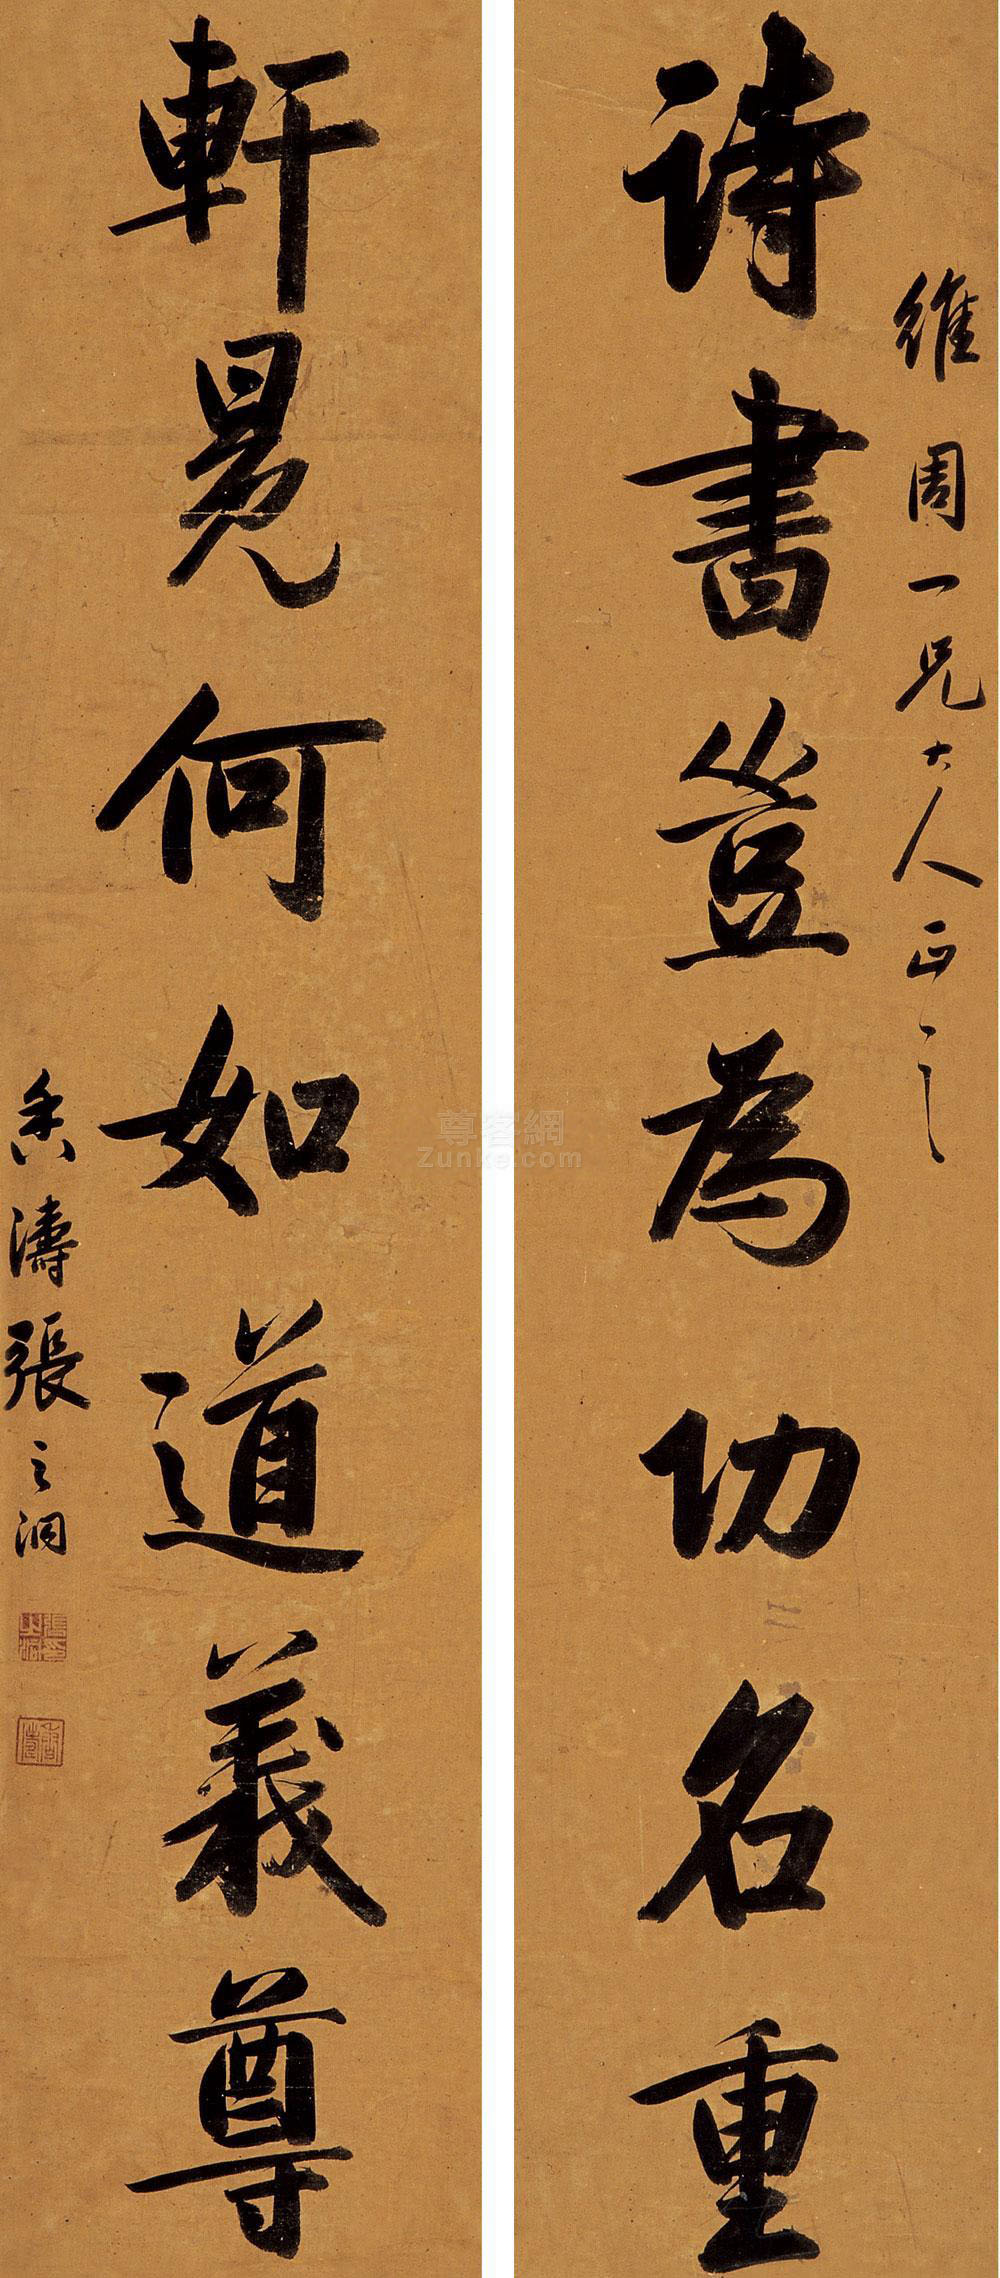 維周一兄大人正之
詩書豈為功名重
軒冕何如道義尊
香濤張之洞
張之洞印
香濤
尊客網
Zunke.com